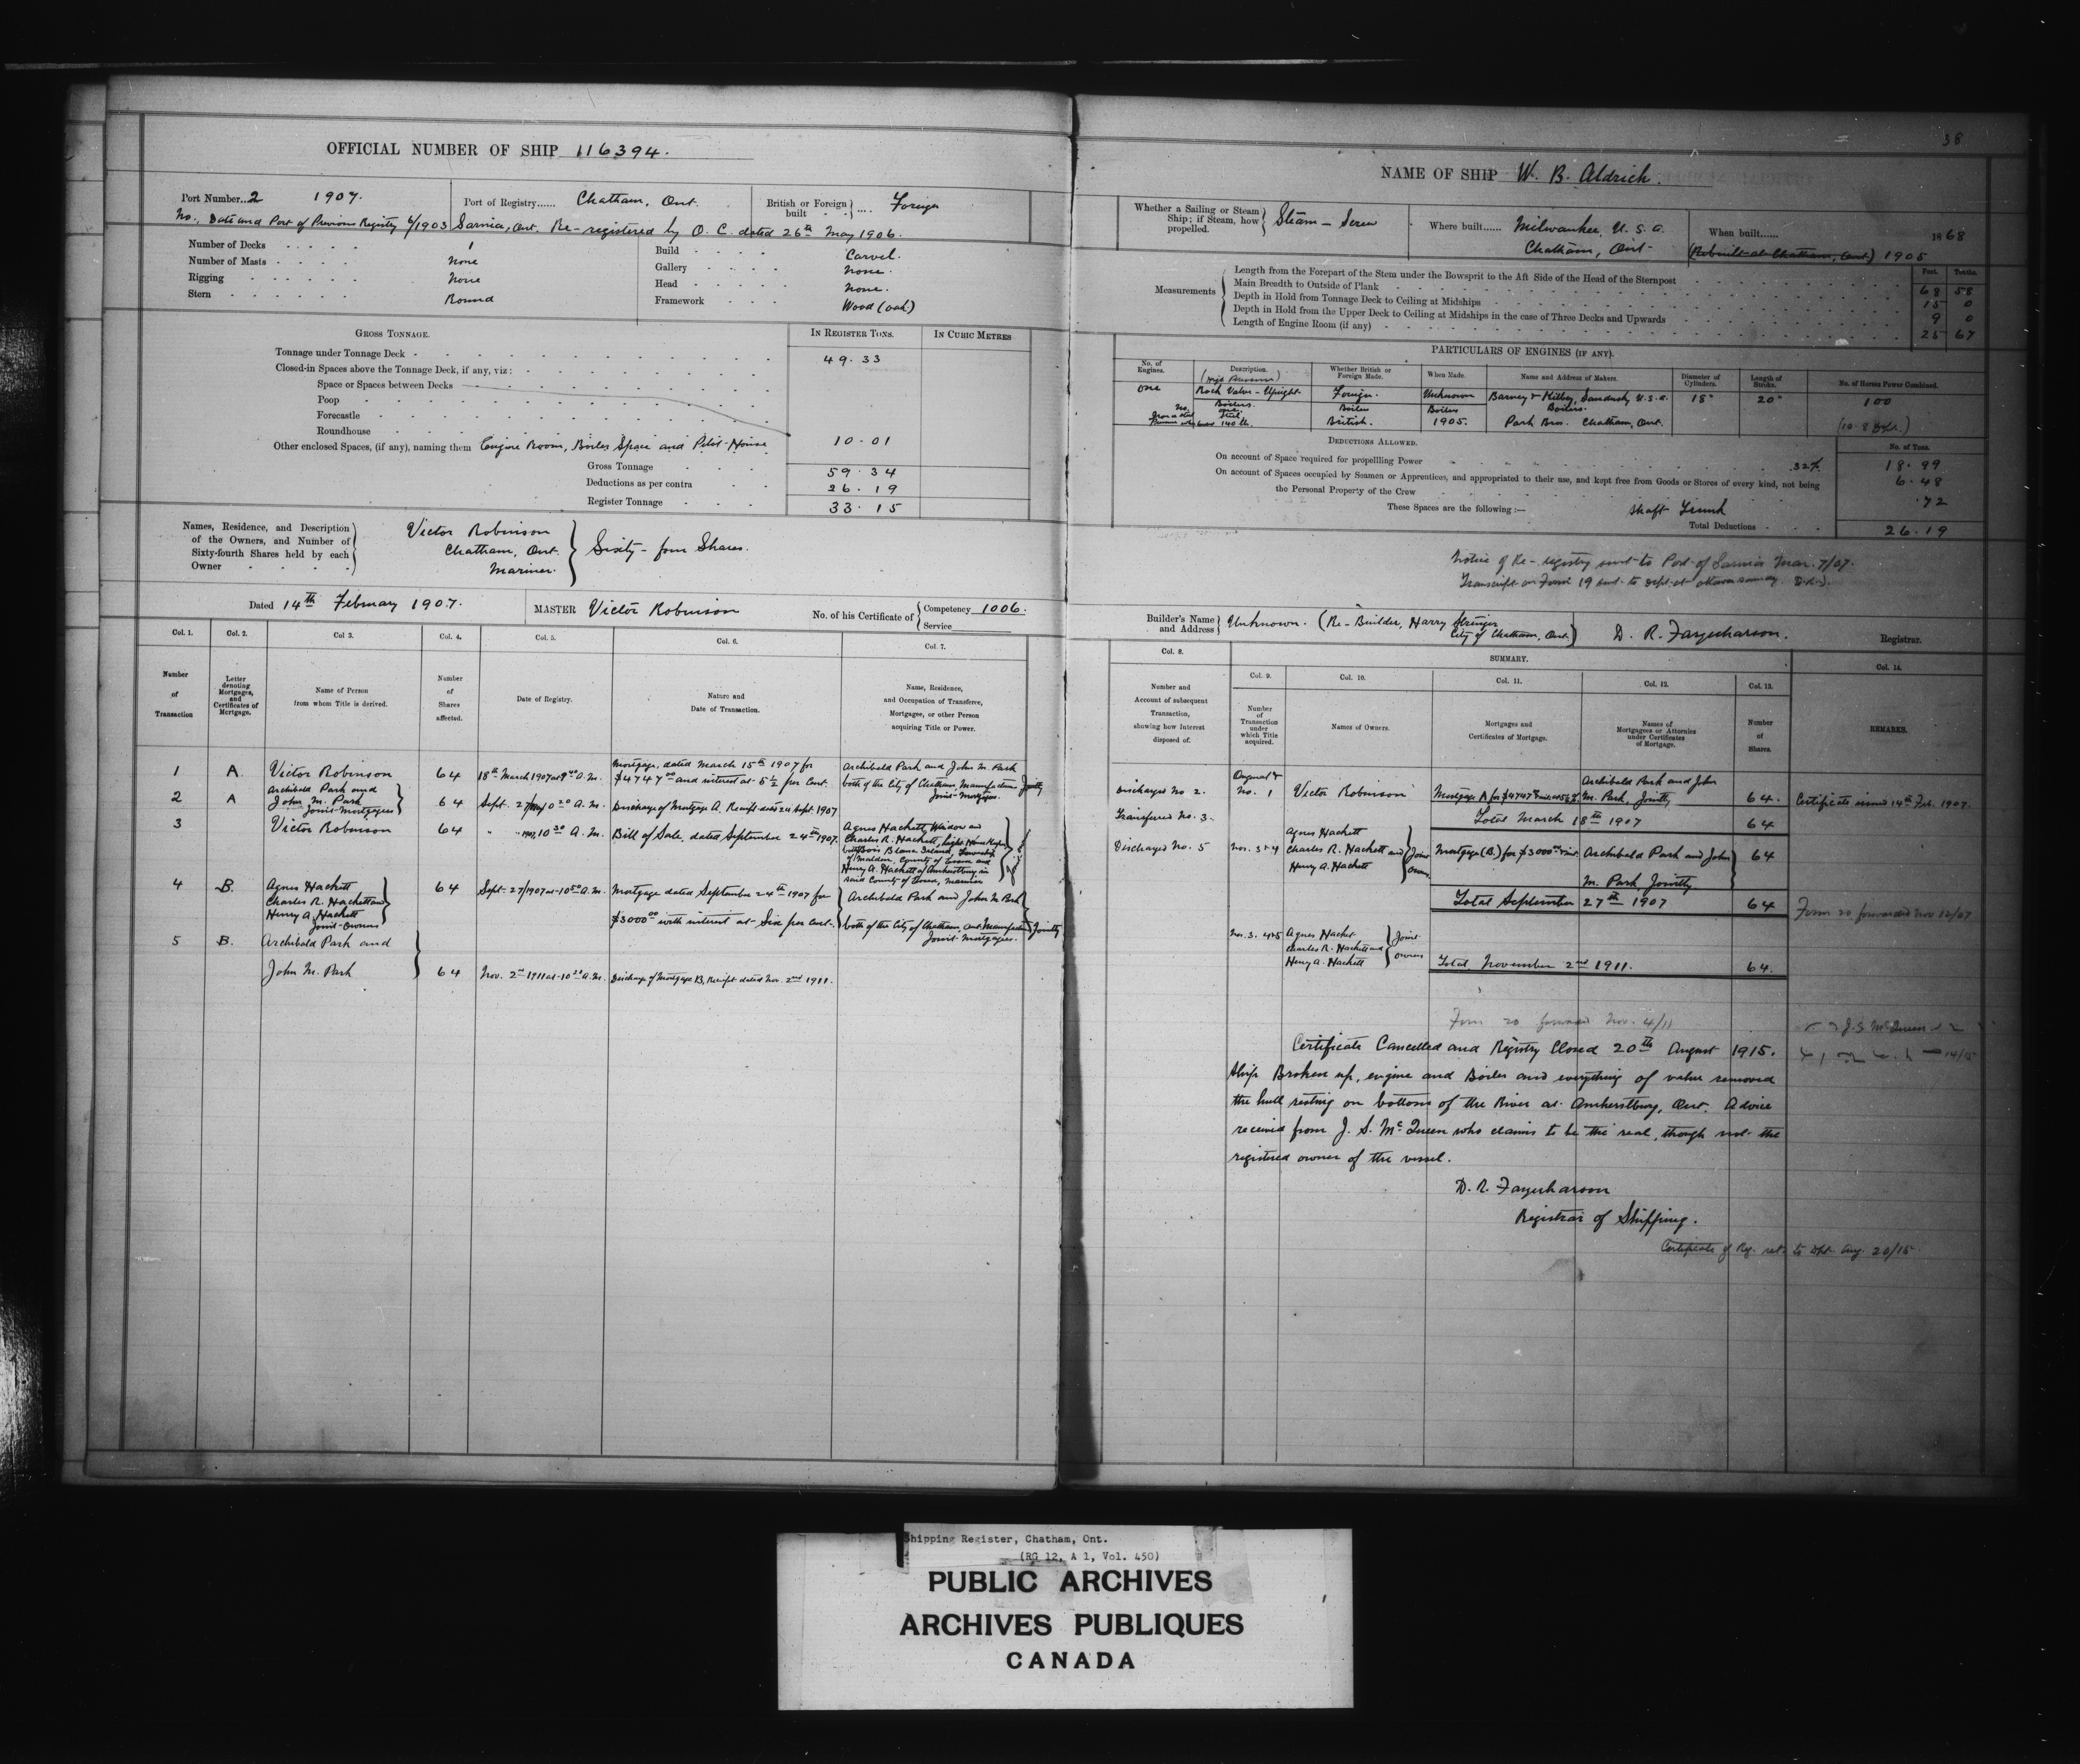 OFFICIAL NUMBER OF SHIP 116394.
Port Number 2 1907.
Port of Registry...... Chatham, Ont.
British or Foreign built Foreign
No., Date and Port of Previous Registry 6/1903 Sarnia, Ont. Re-registered by O. C. dated 26th May 1906.
Number of Decks 1
Number of Masts none
Rigging none
Stern Round
Build Carvel.
Gallery none.
Head none.
Framework Wood (oak)
GROSS TONNAGE.
IN REGISTER TONS.
IN CUBIC METRES
Tonnage under Tonnage Deck 49.33
Closed-in Spaces above the Tonnage Deck, if any, viz:
Space or Spaces between Decks
Poop
Forecastle
Roundhouse
Other enclosed Spaces, (if any), naming them Engine Room, Boiler Space and Pilot-House 10.01
Gross Tonnage 59.34
Deductions as per contra 26.19
Register Tonnage 33.15
Names, Residence, and Description of the Owners, and Number of Sixty-fourth Shares held by each Owner
Victor Robinson
Chatham, Ont.
Mariner.
Sixty-four Shares.
Dated 14th February 1907.
MASTER Victor Robinson
No. of his Certificate of Competency 1006.
Service
Col. 1. Col. 2. Col 3. Col. 4. Col. 5. Col. 6. Col. 7.
Number of Transaction
Letter denoting Mortgages, and Certificates of Mortgage.
Name of Person from whom Title is derived.
Number of Shares affected.
Date of Registry.
Nature and Date of Transaction.
Name, Residence, and Occupation of Transferee, Mortgagee, or other Person acquiring Title or Power.
1 A. Victor Robinson 64 18th March 1907 at 9 00 A.M. Mortgage, dated March 15th 1907 for $4747 00 and interest at 5½ per Cent. Archibald Park and John M. Park both of the City of Chatham, Manufacturers Jointly Joint-Mortgagees.
2 A Archibald Park and John M. Park Joint-Mortgagees 64 Sept. 27/1907 10 20 A.M. Discharge of Mortgage A. Receipt dated 24 Sept. 1907
3 Victor Robinson 64 " " 10 30 A.M. Bill of Sale, dated September 24th 1907. Agnes Hackett, Widow and
Charles R. Hackett, Light House Keeper
both Bois Blanc Island, Township
of Malden, County of Essex and
Henry A. Hackett of Amherstburg in
said County of Essex, mariner
4 B. Agnes Hackett Charles R. Hackett and Henry A. Hackett Joint-Owners 64 Sept. 27/1907 at 10 50 A.M. Mortgage dated September 24th 1907 for $3000 00 with interest at Six per Cent. Archibald Park and John M. Park both of the City of Chatham, Ont. Manufacturers Jointly Joint-Mortgagees.
5 B. Archibald Park and John M. Park 64 Nov. 2nd 1911 at 10 A.M. Discharge of Mortgage B, Receipt dated Nov. 2nd 1911.
38
NAME OF SHIP W. B. Aldrich.
Whether a Sailing or Steam Ship; if Steam, how propelled. Steam - Screw
Where built...... Milwaukee, U.S.A.
Chatham, Ont
When built...... 1868
(Rebuilt at Chatham, Ont.) 1905
Measurements
Feet. Tenths.
Length from the Forepart of the Stem under the Bowsprit to the Aft Side of the Head of the Sternpost 68 58
Main Breadth to Outside of Plank 15 0
Depth in Hold from Tonnage Deck to Ceiling at Midships 9 0
Depth in Hold from the Upper Deck to Ceiling at Midships in the case of Three Decks and Upwards
Length of Engine Room (if any) 25 67
PARTICULARS OF ENGINES (IF ANY).
No. of Engines. Description. Whether British or Foreign Made. When Made. Name and Address of Makers. Diameter of Cylinders. Length of Stroke. No. of Horses Power Combined.
One (High Pressure) Rock Valve - Upright Foreign. Unknown Barney & Kilby, Sandusky U.S.A. 18" 20" 100
No. Boilers one Boilers Boilers Boilers.
Iron or Steel Steel. British. 1905. Park Bros. Chatham, Ont.
Pressure when loaded 140 lb.
DEDUCTIONS ALLOWED.
No. of Tons.
On account of Space required for propelling Power 32% 18.99
On account of Spaces occupied by Seamen or Apprentices, and appropriated to their use, and kept free from Goods or Stores of every kind, not being the Personal Property of the Crew 6.48
These Spaces are the following:— Shaft Trunk .72
Total Deductions 26.19
Notice of Re-registry sent to Port of Sarnia Mar. 7/07.
Transcript on Form 19 sent to Dept. at Ottawa same day
Builder's Name and Address Unknown. (Re-Builder, Harry Stringer City of Chatham, Ont.)
D. R. Farquharson. Registrar.
Col. 8. SUMMARY. Col. 14.
Col. 9. Col. 10. Col. 11. Col. 12. Col. 13.
Number and Account of subsequent Transaction, showing how Interest disposed of.
Number of Transaction under which Title acquired.
Names of Owners.
Mortgages and Certificates of Mortgage.
Names of Mortgagees or Attorneys under Certificates of Mortgage.
Number of Shares.
REMARKS.
Discharged No 2. Original & No. 1 Victor Robinson Mortgage A for $4747 Archibald Park and John M. Park, Jointly 64. Certificate issued 14th Feb. 1907.
Transferred No. 3. Total March 18th 1907 64
Discharged No. 5 Nos. 3 & 4 Agnes Hackett Charles R. Hackett and Henry A. Hackett Joint owners Mortgage (B.) for $3000 Archibald Park and John M. Park, Jointly 64
Total September 27th 1907 64 Form 20 forwarded Nov 12/07
Nos. 3. 4 & 5 Agnes Hacket Charles R. Hackett and Henry A. Hackett Joint owners
Total, November 2nd 1911. 64.
Form 20 forwarded Nov. 4/11
J. S. McQueen
Certificate Cancelled and Registry Closed 20th August 1915.
Ship Broken up, engine and Boiler and everything of value removed
the hull resting on bottom of the River at Amherstburg, Ont. Advice
received from J. S. McQueen who claims to be the real, though not the
registered owner of the vessel.
D. R. Farquharson
Registrar of Shipping.
Certificate of Reg. ret. to Dpt. Aug. 20/15
Shipping Register, Chatham, Ont.
(RG 12, A 1, Vol. 450)
PUBLIC ARCHIVES
ARCHIVES PUBLIQUES
CANADA